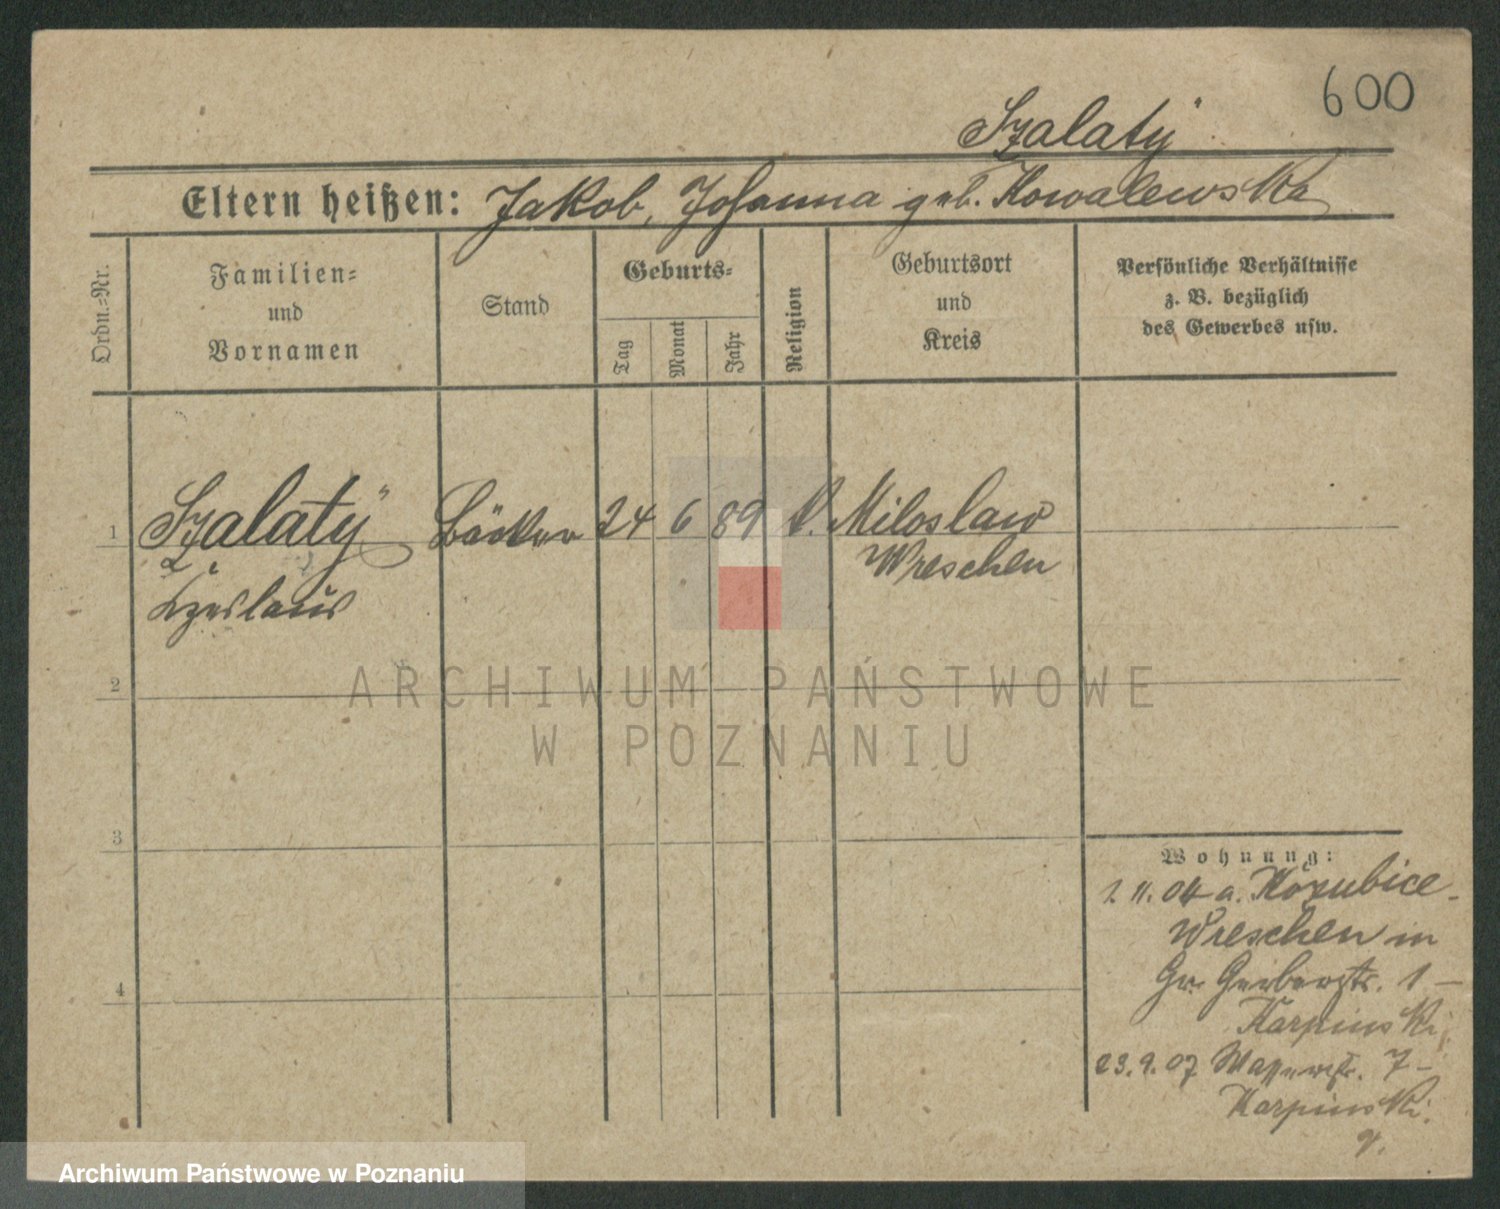 600
Szalaty
Eltern heißen: Jakob, Johanna geb. Kowalewska
Ordn.-Nr.
Familien-
und
Vornamen
Stand
Geburts-
Tag
Monat
Jahr
Religion
Geburtsort
und
Kreis
Persönliche Verhältnisse
z. B. bezüglich
des Gewerbes usw.
1 Szalaty Bäcker 24 6 89 k. Miloslaw
Wreschen
Czeslaus
2
ARCHIWUM PAŃSTWOWE
W POZNANIU
3
Wohnung:
2.11.04 a.
Wreschen in
4
Gr. Gerberstr. 1 –
Karpinski
23.9.07 Wasserstr. 7 –
Karpinski.
Archiwum Państwowe w Poznaniu